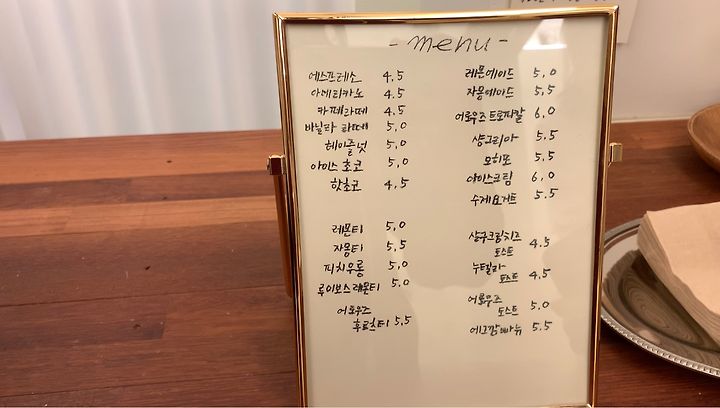 - menu -
에스프레소 4.5
아메리카노 4.5
카페라떼 4.5
바닐라 라떼 5.0
헤이즐넛 5.0
아이스 초코 5.0
핫초코 4.5
레몬티 5.0
자몽티 5.5
피치우롱 5.0
루이보스레몬티 5.0
어로우즈
후르츠티 5.5
레몬에이드 5.0
자몽에이드 5.5
어로우즈트로피칼 6.0
샹그리아 5.5
모히또 5.5
아이스크림 6.0
수제요거트 5.5
살구크림치즈
토스트 4.5
누텔라
토스트 4.5
어로우즈
토스트 5.0
에그깜빠뉴 5.5